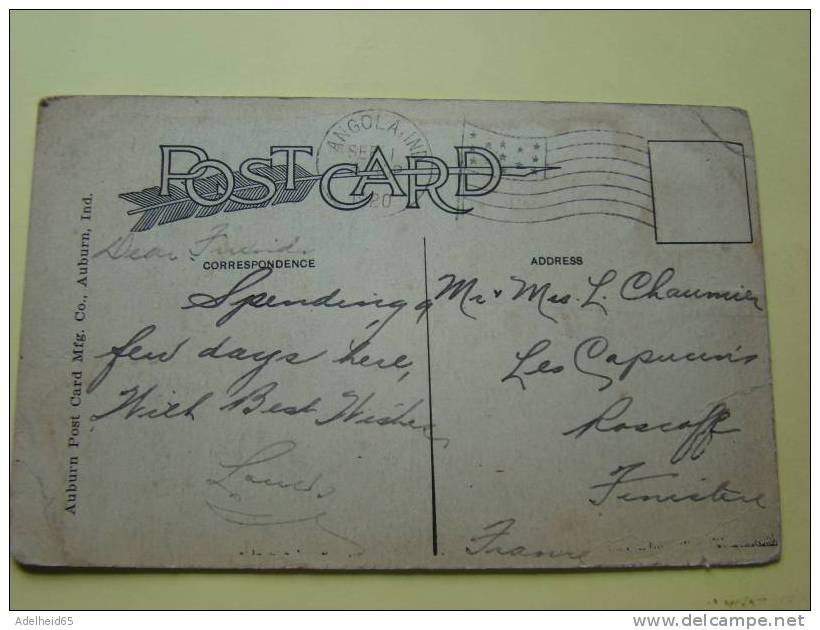 POST CARD
ANGOLA, IND
SEP 1
20
Auburn Post Card Mfg. Co., Auburn, Ind.
CORRESPONDENCE
ADDRESS
Dear Friends
Spending a
few days here,
With Best Wishes
Louis
Mr & Mrs. L. Chaumier
Les Capucins
Roscoff
Finistere
France
Adelheid65
delcampe.net